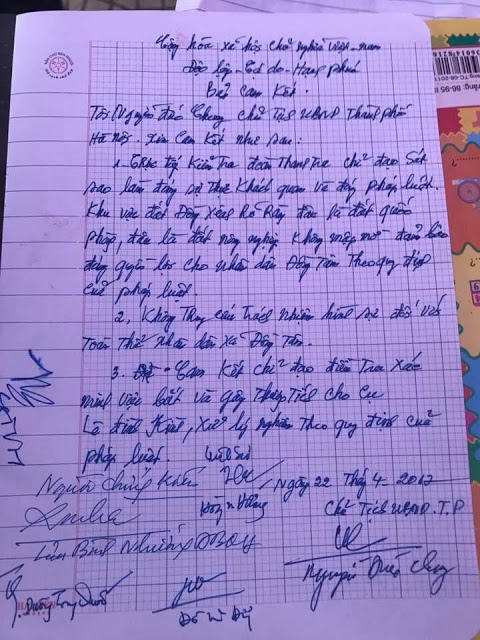 Cộng hòa xã hội chủ nghĩa việt nam
Độc lập - Tự do - Hạnh phúc
Bản Cam Kết.
Tôi Nguyễn Đức Chung chủ tịch UBND Thành phố
Hà nội. Xin Cam Kết như sau:
1. trực tiếp Kiểm Tra đoàn Thanh tra chỉ đạo Sát
sao làm đúng sự Thật Khách quan và đúng pháp luật.
Khu vực đất Đồng Xênh Rõ Ràng đâu là đất quốc
phòng, đâu là đất nông nghiệp Không mập mờ đảm bảo
đúng quyền lợi cho nhân dân Đồng Tâm Theo quy định
của pháp luật.
2. Không Truy cứu Trách nhiệm hình sự đối với
Toàn Thể Nhân dân Xã Đồng Tâm.
3. Cam Kết chỉ đạo điều Tra Xác
minh việc bắt và gây Thương Tích cho Cụ
Lê Đình Kình, Xử lý nghiêm Theo quy định của
pháp luật.
Người chứng kiến
Ngày 22 Thg 4-2017
Chủ Tịch UBND.T.P
Lưu Bình Nhưỡng ĐBQH
Nguyễn Đức Chung
Dương Trung Quốc
Đỗ V Đỹ